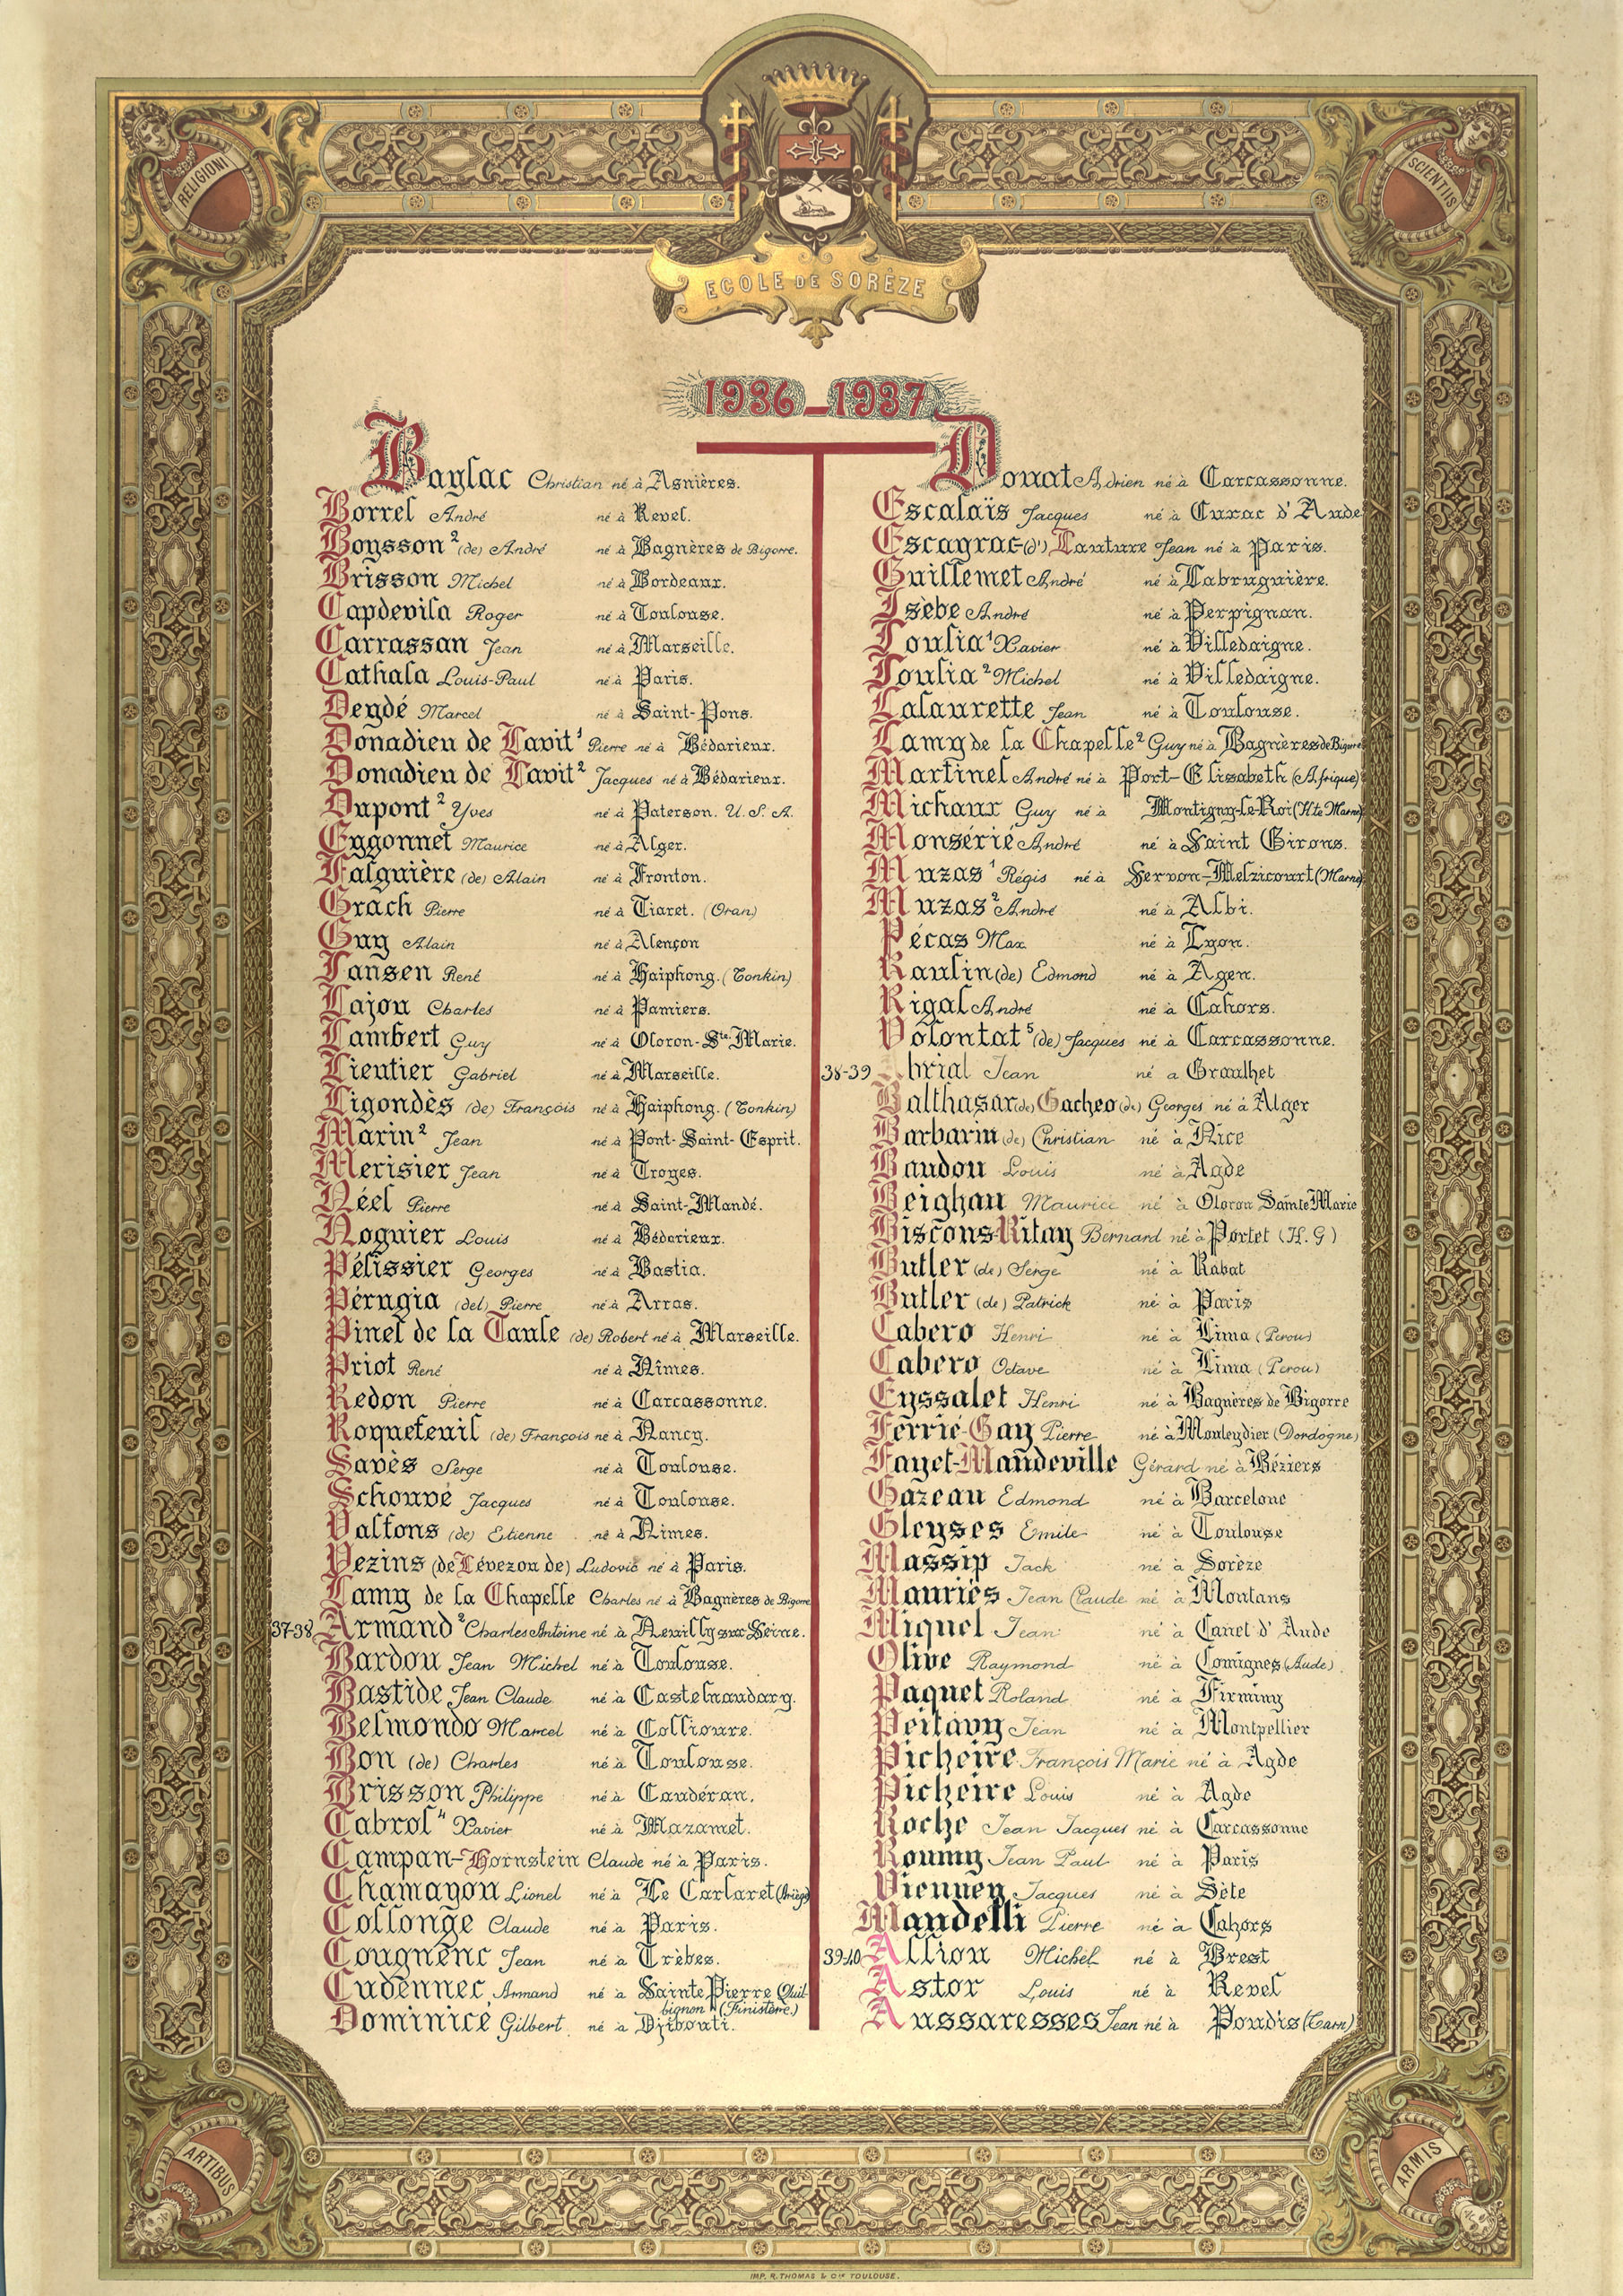 RELIGIONI
SCIENTIIS
ECOLE DE SORÈZE
1936_1937
Baylac Christian né à Asnières.
Borrel André né à Revel.
Boysson² (de) André né à Bagnères de Bigorre.
Brisson Michel né à Bordeaux.
Capdevila Roger né à Toulouse.
Carrassan Jean né à Marseille.
Cathala Louis-Paul né à Paris.
Deydé Marcel né à Saint-Pons.
Donadieu de Lavit¹ Pierre né à Bédarieux.
Donadieu de Lavit² Jacques né à Bédarieux.
Dupont² Yves né à Paterson. U.S.A.
Eygonnet Maurice né à Alger.
Falguière (de) Alain né à Fronton.
Grach Pierre né à Tiaret. (Oran)
Guy Alain né à Alençon
Jansen René né à Haiphong. (Tonkin)
Lajou Charles né à Pamiers.
Lambert Guy né à Oloron-Ste. Marie.
Lieutier Gabriel né à Marseille.
Ligondès (de) François né à Haiphong. (Tonkin)
Marin² Jean né à Pont-Saint-Esprit.
Merisier Jean né à Troyes.
Néel Pierre né à Saint-Mandé.
Noguier Louis né à Bédarieux.
Pélissier Georges né à Bastia.
Pérugia (del) Pierre né à Arras.
Pinel de la Taule (de) Robert né à Marseille.
Priot René né à Nîmes.
Redon Pierre né à Carcassonne.
Roquefeuil (de) François né à Nancy.
Savès Serge né à Toulouse.
Schouvé Jacques né à Toulouse.
Valfons (de) Etienne né à Nîmes.
Vezins (de Lévezou de) Ludovic né à Paris.
Lamy de la Chapelle Charles né à Bagnères de Bigorre
37-38 Armand² Charles Antoine né à Neuilly sur Seine.
Bardou Jean Michel né à Toulouse.
Bastide Jean Claude né à Castelnaudary.
Belmondo Marcel né à Collioure.
Bon (de) Charles né à Toulouse.
Brisson Philippe né à Caudéran.
Cabrol⁴ Xavier né à Mazamet.
Campan-Hornstein Claude né à Paris.
Chamayou Lionel né à Le Carlaret (Ariège)
Collonge Claude né à Paris.
Cougnenc Jean né à Trèbes.
Cudennec Armand né à Sainte Pierre Quil-
bignon (Finistère.)
Dominicé Gilbert né à Djibouti.
Donat Adrien né à Carcassonne.
Escalaïs Jacques né à Cuxac d'Aude
Escayrac (d') Lauture Jean né à Paris.
Guillemet André né à Labruguière.
Isèbe André né à Perpignan.
Joulia¹ Xavier né à Villedaigne.
Joulia² Michel né à Villedaigne.
Lalaurette Jean né à Toulouse.
Lamy de la Chapelle² Guy né à Bagnères de Bigorre
Martinel André né à Port-Elisabeth (Afrique)
Michaux Guy né à Montigny-le-Roi (Hte Marne)
Monsérié André né à Saint Girons.
Muzas¹ Régis né à Servon-Melzicourt (Marne)
Muzas² André né à Albi.
Pécas Max né à Lyon.
Raulin (de) Edmond né à Agen.
Rigal André né à Cahors.
Volontat⁵ (de) Jacques né à Carcassonne.
38-39 Abrial Jean né a Graulhet
Balthasar (de) Gacheo (de) Georges né à Alger
Barbarin (de) Christian né à Nice
Baudou Louis né à Agde
Beighau Maurice né à Oloron Sainte Marie
Biscons-Ritay Bernard né à Portet (H.G)
Butler (de) Serge né à Rabat
Butler (de) Patrick né à Paris
Cabero Henri né à Lima (Perou)
Cabero Octave né à Lima (Perou)
Eyssalet Henri né à Bagnères de Bigorre
Ferrié-Gay Pierre né à Mouleydier (Dordogne)
Fayet-Mandeville Gérard né à Béziers
Gazeau Edmond né à Barcelone
Gleyses Emile né à Toulouse
Massip Jack né à Sorèze
Mauriès Jean Claude né à Montans
Miquel Jean né à Canet d'Aude
Olive Raymond né à Comignes (Aude)
Paquet Roland né à Firminy
Peitavy Jean né à Montpellier
Picheire François Marie né à Agde
Picheire Louis né à Agde
Roche Jean Jacques né à Carcassonne
Roumy Jean Paul né à Paris
Viennen Jacques né à Sète
Mandelli Pierre né à Cahors
39-40 Allion Michel né à Brest
Astor Louis né à Revel
Aussaresses Jean né à Poudis (Tarn)
ARTIBUS
ARMIS
IMP. R. THOMAS & Cie TOULOUSE.